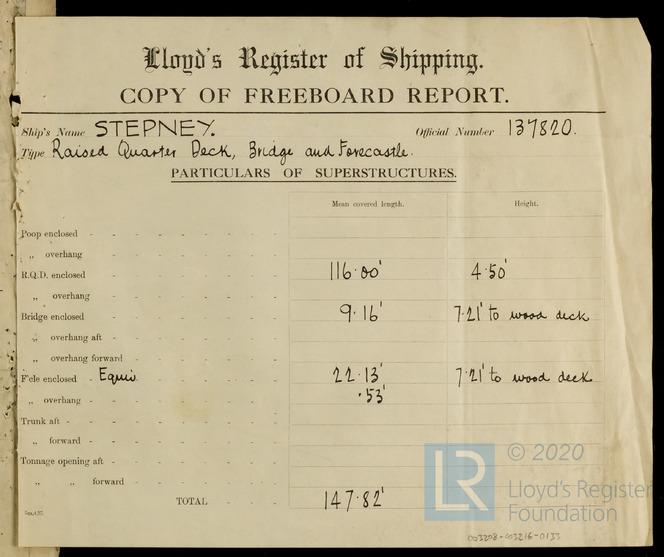 Lloyd's Register of Shipping.
COPY OF FREEBOARD REPORT.
Ship's Name STEPNEY. Official Number 137820.
Type Raised Quarter Deck, Bridge and Forecastle.
PARTICULARS OF SUPERSTRUCTURES.
Mean covered length. Height.
Poop enclosed
„ overhang
R.Q.D. enclosed 116.00' 4.50'
„ overhang
Bridge enclosed 9.16' 7.21' to wood deck
„ overhang aft
„ overhang forward
F'cle enclosed Equiv. 22.13' 7.21' to wood deck
„ overhang .53'
Trunk aft
„ forward
Tonnage opening aft
„ „ forward
TOTAL 147.82'
LR © 2020
Lloyd's Register
Foundation
003208-003216-0133